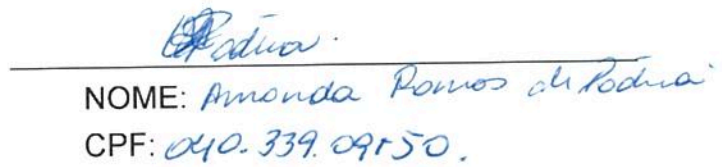 Pádua.
NOME: Amanda Ramos de Pádua
CPF: 040.339.091-50.